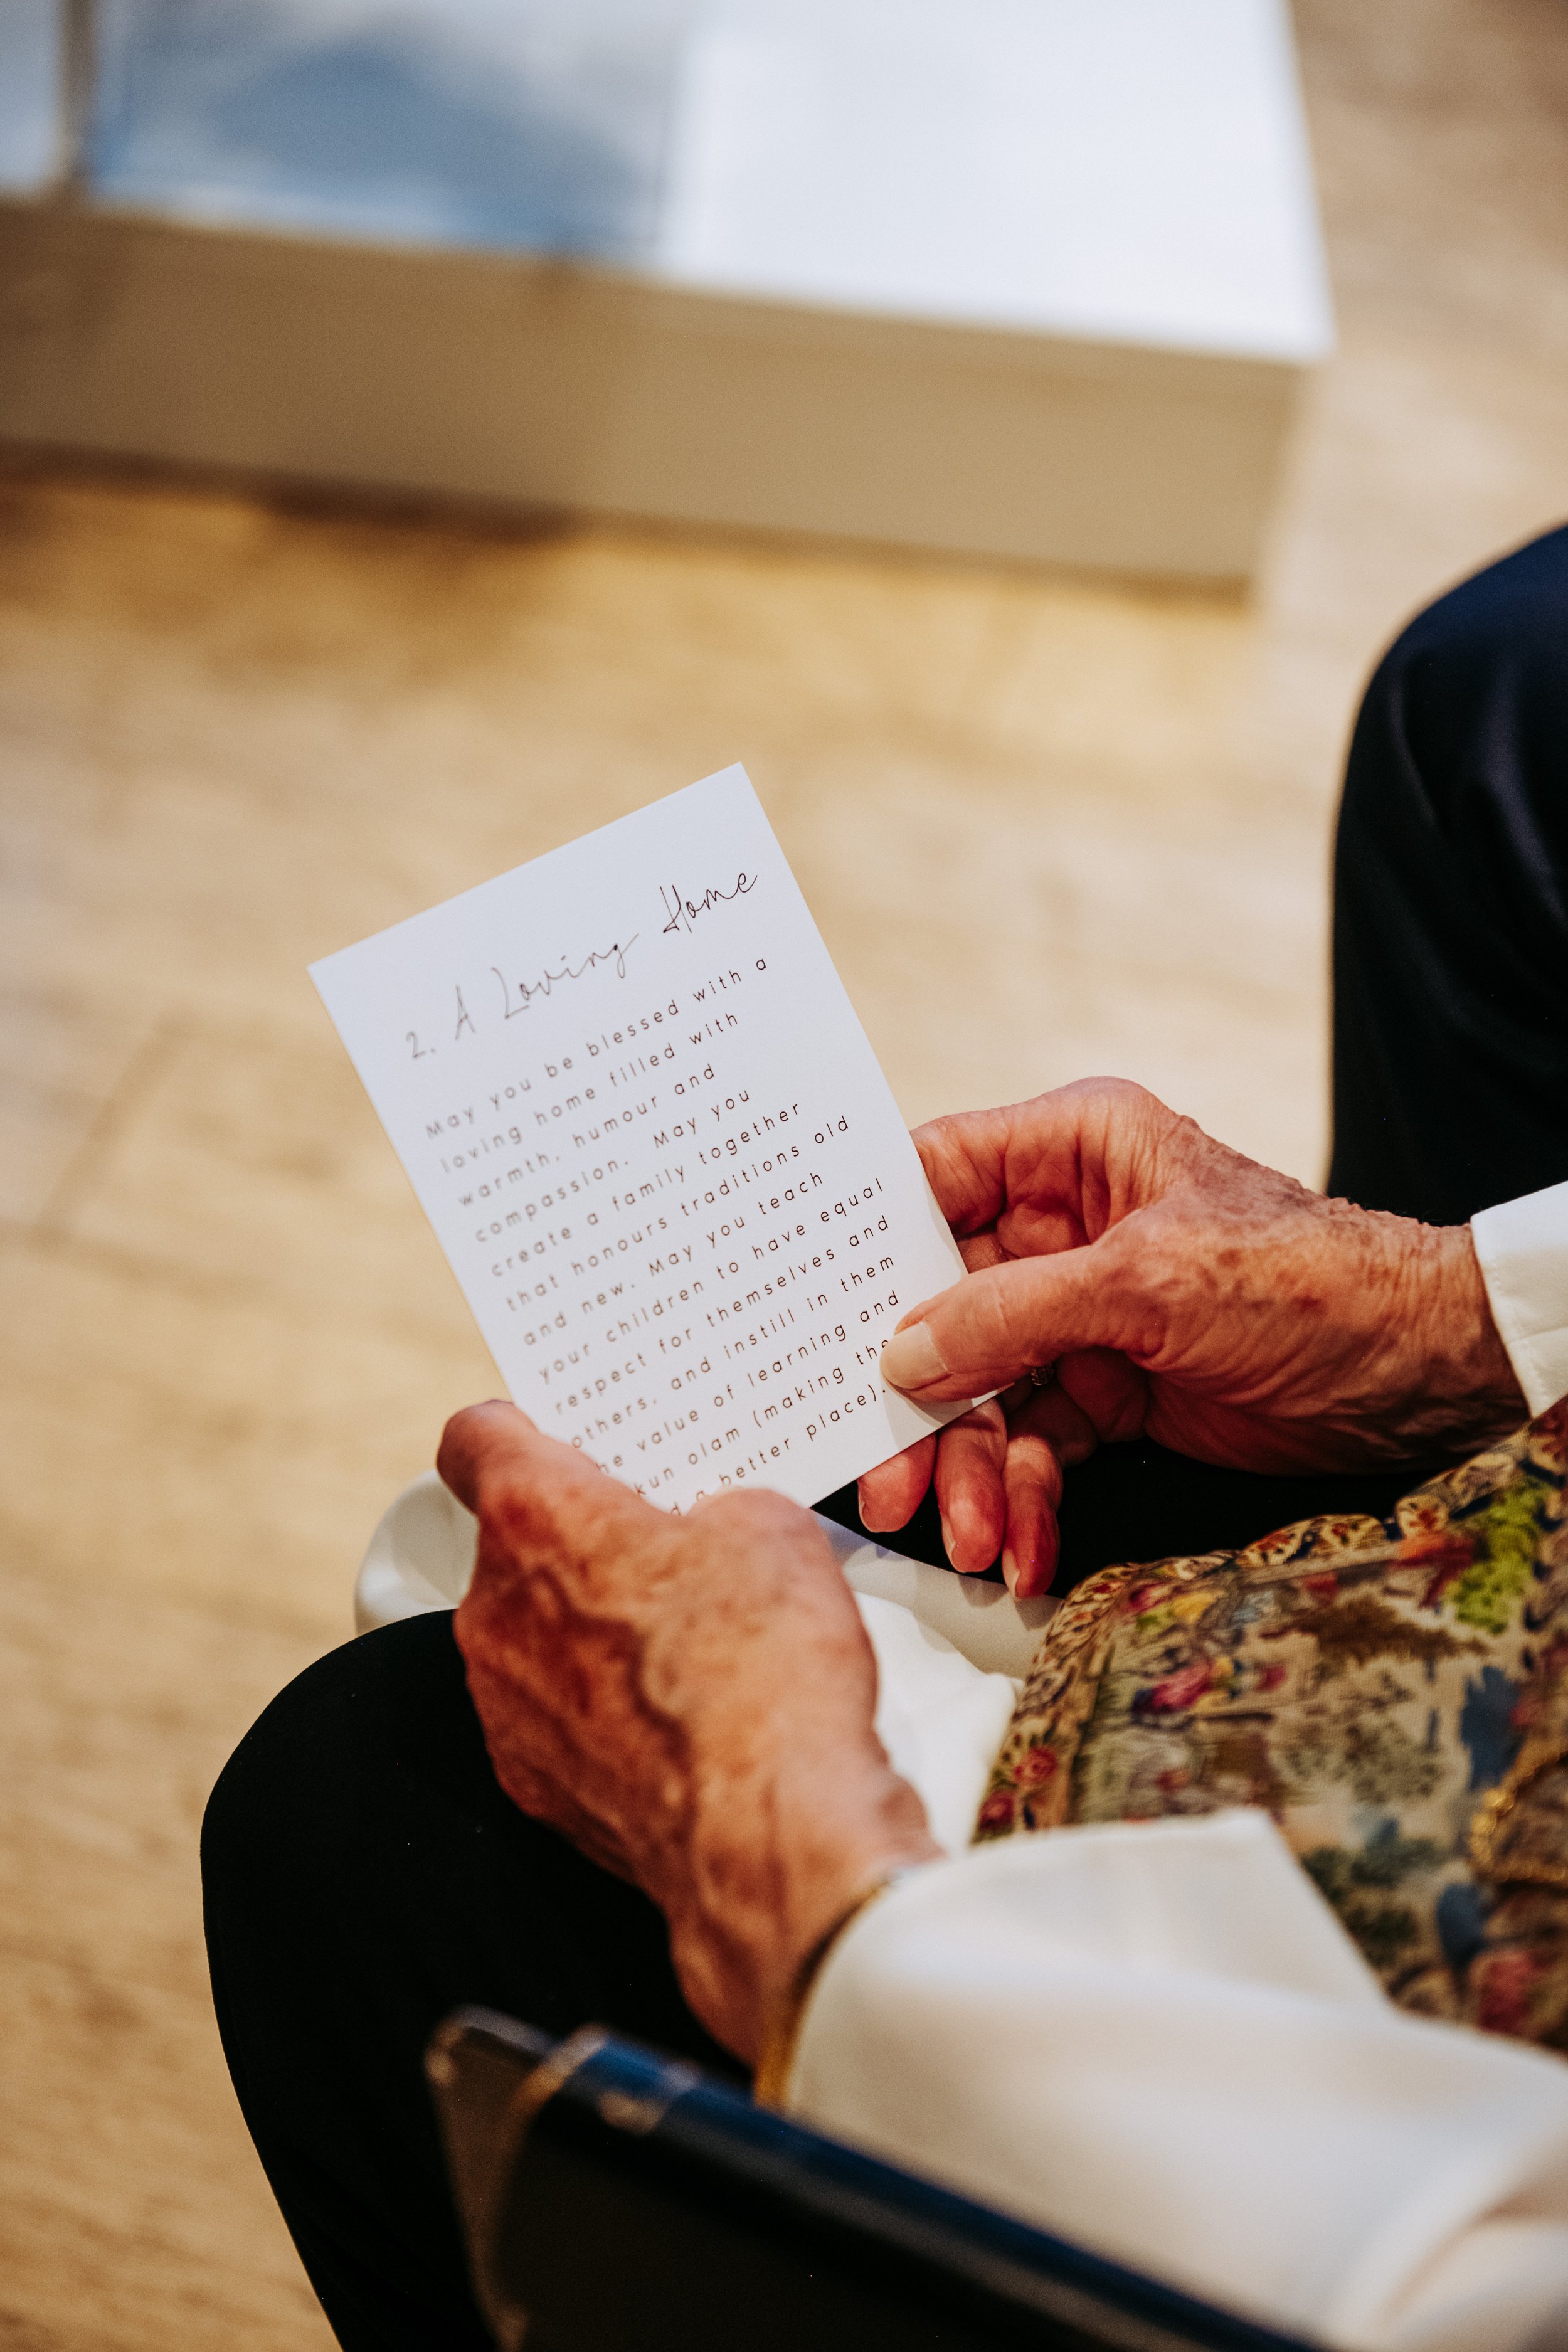 2. A Loving Home
May you be blessed with a
loving home filled with
warmth, humour and
compassion. May you
create a family together
that honours traditions old
and new. May you teach
your children to have equal
respect for themselves and
others, and instill in them
value of learning and
olam (making the
better place).